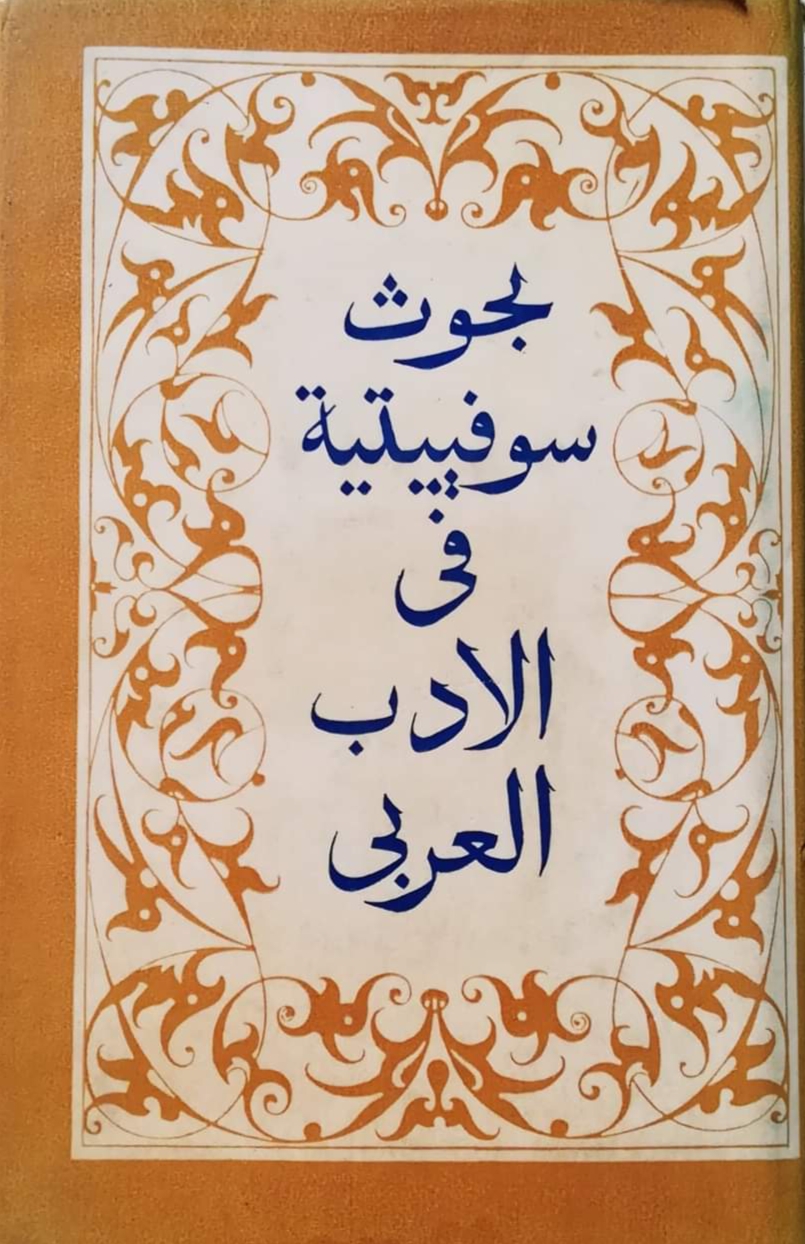 بحوث
سوفييتية
فى
الادب
العربى